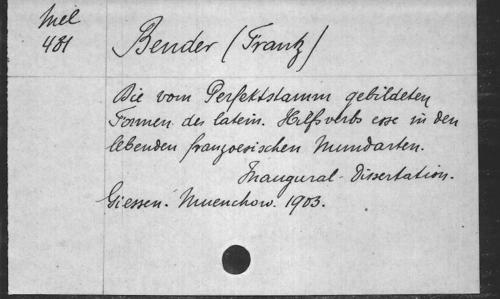 Mél
481
Bender (Frantz)
Die vom Perfektstamm gebildeten
Formen des latein. Hilfsverbs esse in den
lebenden franzoesischen Mundarten.
Inaugural-Dissertation.
Giessen. Muenchow. 1903.